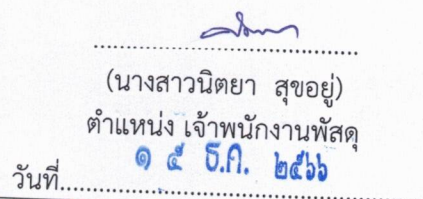 (นางสาวนิตยา สุขอยู่)
ตำแหน่ง เจ้าพนักงานพัสดุ
วันที่ ๑ ๕ ธ.ค. ๒๕๖๖